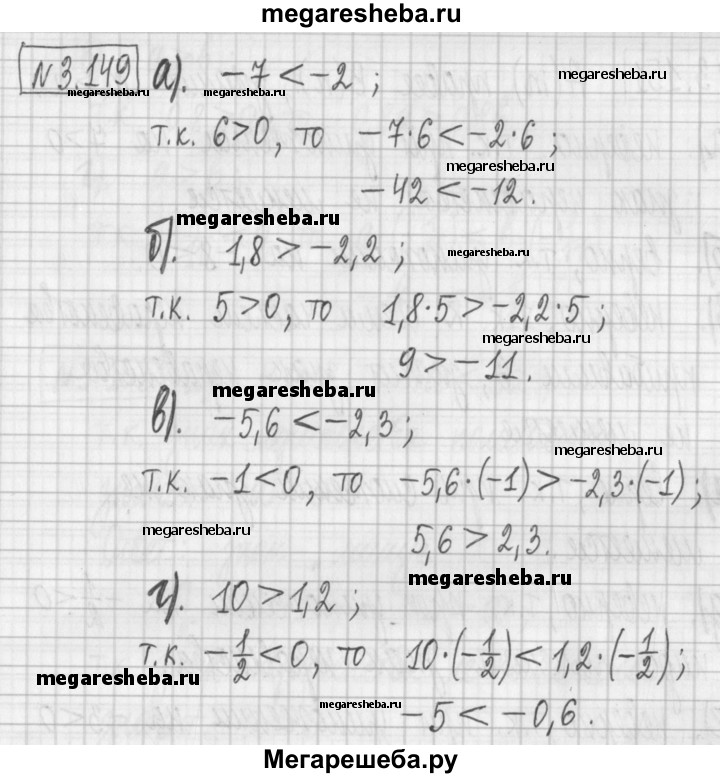 megaresheba.ru
N3.149 а). -7 < -2 ; megaresheba.ru
megaresheba.ru megaresheba.ru
т.к. 6>0, то -7·6 < -2·6 ;
megaresheba.ru
-42 < -12.
megaresheba.ru
б). 1,8 > -2,2 ; megaresheba.ru
т.к. 5>0, то 1,8·5 > -2,2·5 ;
megaresheba.ru
9 > -11.
megaresheba.ru
в). -5,6 < -2,3 ;
megaresheba.ru
т.к. -1<0, то -5,6·(-1) > -2,3·(-1) ;
megaresheba.ru
5,6 > 2,3.
megaresheba.ru
г). 10 > 1,2 ;
т.к. -1/2 < 0, то 10·(-1/2) < 1,2·(-1/2) ;
megaresheba.ru
megaresheba.ru
-5 < -0,6.
megaresheba.ru
Мегарешеба.ру